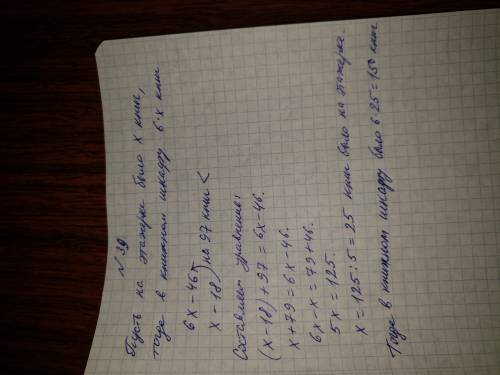 № 39
Пусть на этажерке было x книг,
тогда в книжном шкафу 6·x книг
6x-46
x-18) на 97 книг <
Составляем уравнение:
(x-18)+97=6x-46.
x+79=6x-46.
6x-x=79+46.
5x=125.
x=125:5=25 книг было на этажерке.
Тогда в книжном шкафу было 6·25=150 книг